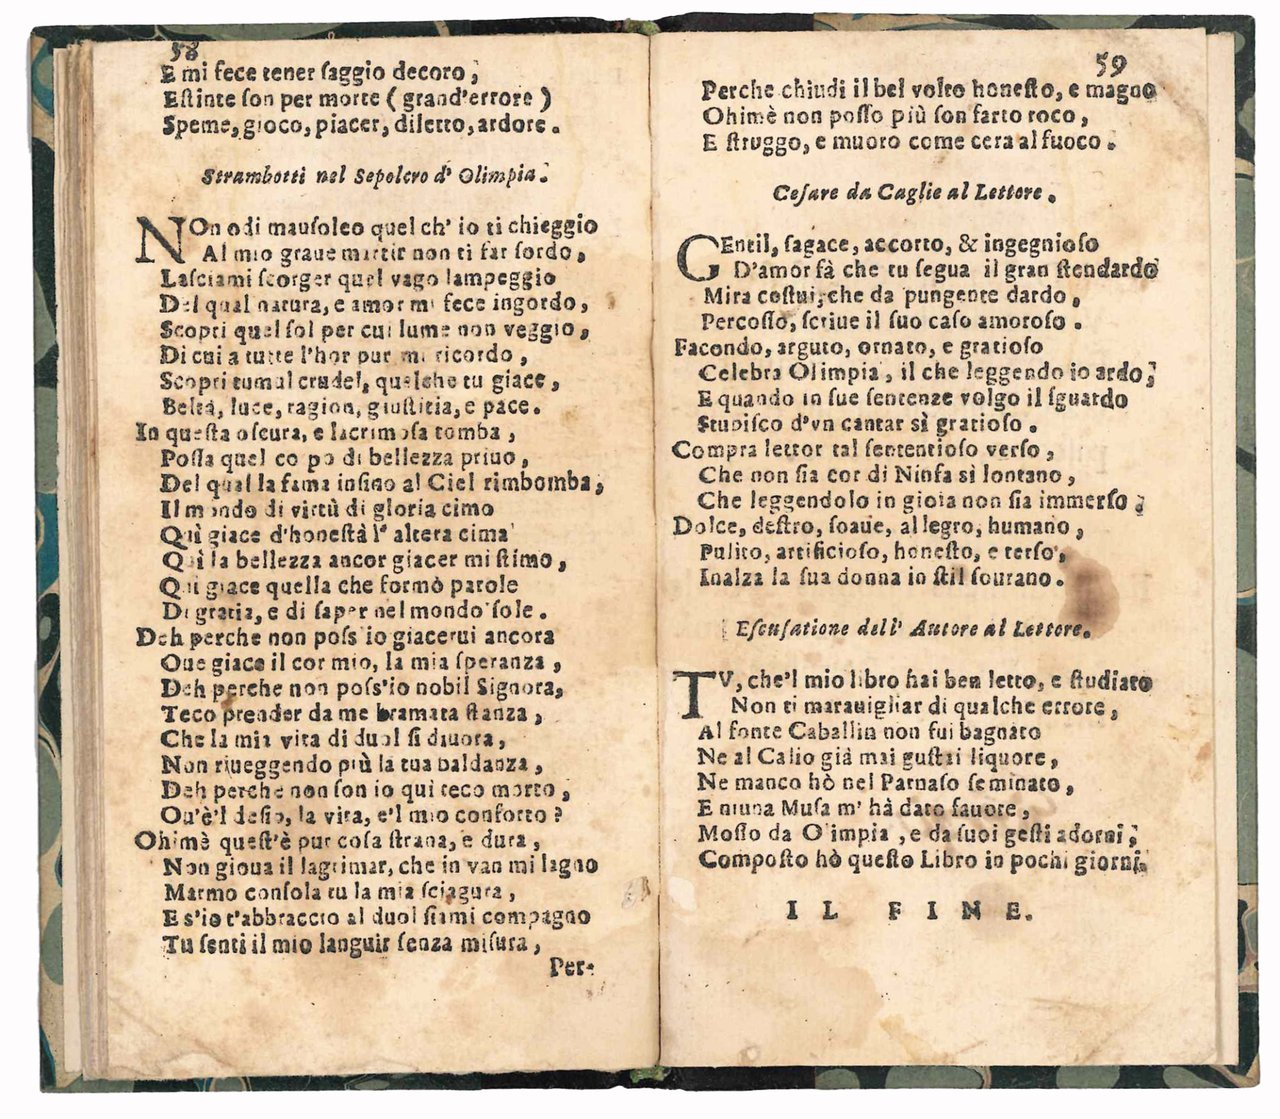 58
E mi fece tener ſaggio decoro;
Eſtinte ſon per morte (grand'errore)
Speme, gioco, piacer, diletto, ardore.
Strambotti nel Sepolcro d' Olimpia.
NOn odi mauſoleo quel ch' io ti chieggio
Al mio graue martir non ti far ſordo,
Laſciami ſcorger quel vago lampeggio
Del qual natura, e amor mi fece ingordo,
Scopri quel ſol per cui lume non veggio,
Di cui a tutte l'hor pur mi ricordo,
Scopri tumul crudel, quelche tu giace,
Beltá, luce, ragion, giuſtitia, e pace.
In queſta oſcura, e lacrimoſa tomba,
Poſſa quel co po di bellezza priuo,
Del qual la fama inſino al Ciel rimbomba,
Il mondo di virtù di gloria cimo
Quì giace d'honeſtà l' altera cima
Quì la bellezza ancor giacer mi ſtimo,
Qui giace quella che formò parole
Di gratia, e di ſaper nel mondo ſole.
Deh perche non poſſ' io giacerui ancora
Oue giace il cor mio, la mia ſperanza,
Deh perche non poſſ'io nobil Signora,
Teco prender da me bramata ſtanza,
Che la mia vita di duol ſi diuora,
Non riueggendo più la tua baldanza,
Deh perche non ſon io qui teco morto,
Ou'è'l deſio, la vita, e'l mio conforto?
Ohimè queſt'è pur coſa ſtrana, e dura,
Non gioua il lagrimar, che in van mi lagno
Marmo conſola tu la mia ſciagura,
E s'io t'abbraccio al duol ſiami compagno
Tu ſenti il mio languir ſenza miſura,
Per-
59
Perche chiudi il bel volto honeſto, e magno
Ohimè non poſſo più ſon farto roco,
E ſtruggo, e muoro come cera al fuoco.
Ceſare da Caglie al Lettore.
GEntil, ſagace, accorto, & ingegnioſo
D'amor fà che tu ſegua il gran ſtendardo
Mira coſtui, che da pungente dardo,
Percoſſo, ſcriue il ſuo caſo amoroſo.
Facondo, arguto, ornato, e gratioſo
Celebra Olimpia, il che leggendo io ardo;
E quando in ſue ſentenze volgo il ſguardo
Stupiſco d'vn cantar sì gratioſo.
Compra lettor tal ſententioſo verſo,
Che non ſia cor di Ninfa sì lontano,
Che leggendolo in gioia non ſia immerſo;
Dolce, deſtro, ſoaue, allegro, humano,
Pulito, artificioſo, honeſto, e terſo,
Inalza la ſua donna in ſtil ſourano.
Eſcuſatione dell' Autore al Lettore.
TV, che'l mio libro hai ben letto, e ſtudiato
Non ti marauigliar di qualche errore,
Al fonte Caballin non fui bagnato
Ne al Calio già mai guſtai liquore,
Ne manco hò nel Parnaſo ſeminato,
E niuna Muſa m' hà dato fauore,
Moſſo da Olimpia, e da ſuoi geſti adorni,
Compoſto hò queſto Libro in pochi giorni.
IL FINE.